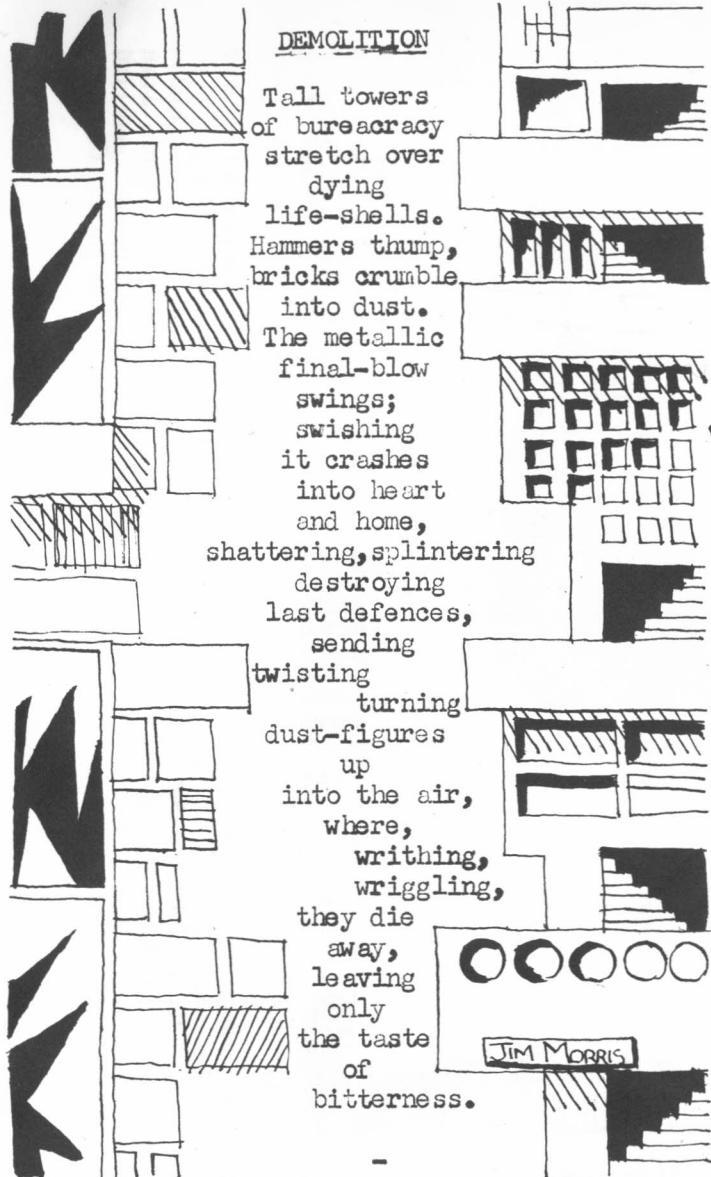 DEMOLITION
Tall towers
of bureacracy
stretch over
dying
life-shells.
Hammers thump,
bricks crumble
into dust.
The metallic
final-blow
swings;
swishing
it crashes
into heart
and home,
shattering,splintering
destroying
last defences,
sending
twisting
turning
dust-figures
up
into the air,
where,
writhing,
wriggling,
they die
away,
leaving
only
the taste
of
bitterness.
-
JIM MORRIS